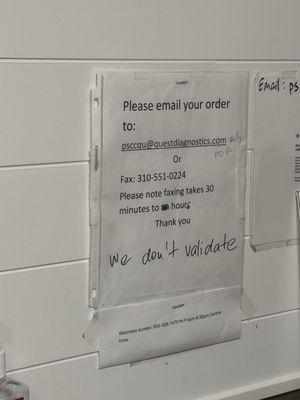 Please email your order
to:
psccqu@questdiagnostics.com only
PDF
Or
Fax: 310-551-0224
Please note faxing takes 30
minutes to hours
Thank you
we don't validate
Wellness screen: 855-328-7470 M-F 9am-6:30pm Central
time.
Email: ps